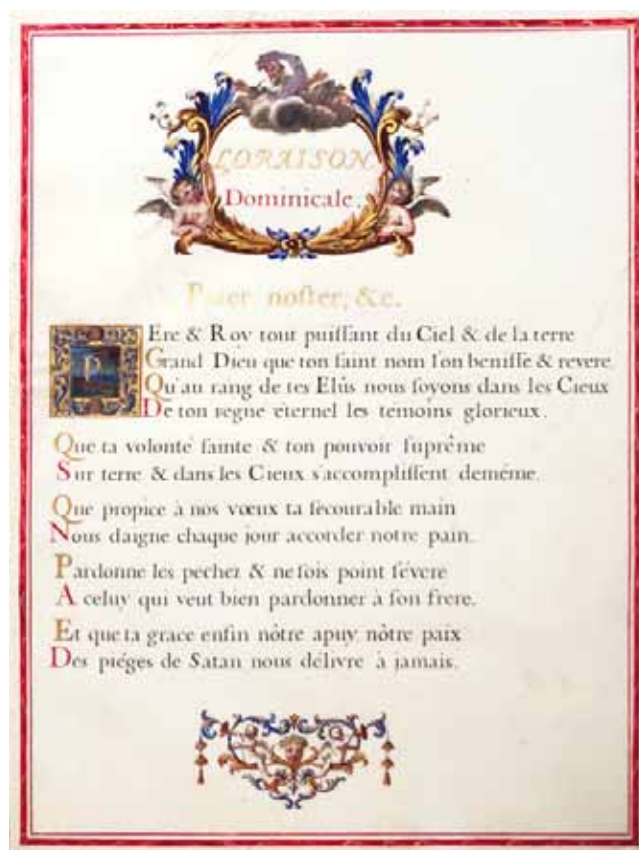 L'ORAISON
Dominicale.
Pater noster, &c.
PEre & Roy tout puiſſant du Ciel & de la terre
Grand Dieu que ton ſaint nom l'on beniſſe & revere
Qu'au rang de tes Elûs nous ſoyons dans les Cieux
De ton regne éternel les temoins glorieux.
Que ta volonté ſainte & ton pouvoir ſuprême
Sur terre & dans les Cieux s'accompliſſent deméme.
Que propice à nos vœux ta ſécourable main
Nous daigne chaque jour accorder notre pain.
Pardonne les pechez & ne ſois point ſévere
A celuy qui veut bien pardonner à ſon frere.
Et que ta grace enfin nôtre apuy nôtre paix
Des piéges de Satan nous délivre à jamais.